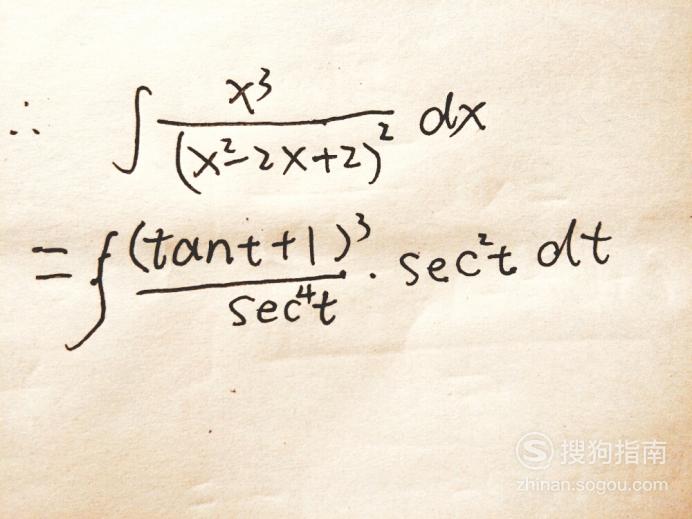 ∴ ∫ x³/(x²-2x+2)² dx
= ∫ (tant+1)³/sec⁴t · sec²t dt
S 搜狗指南
zhinan.sogou.com